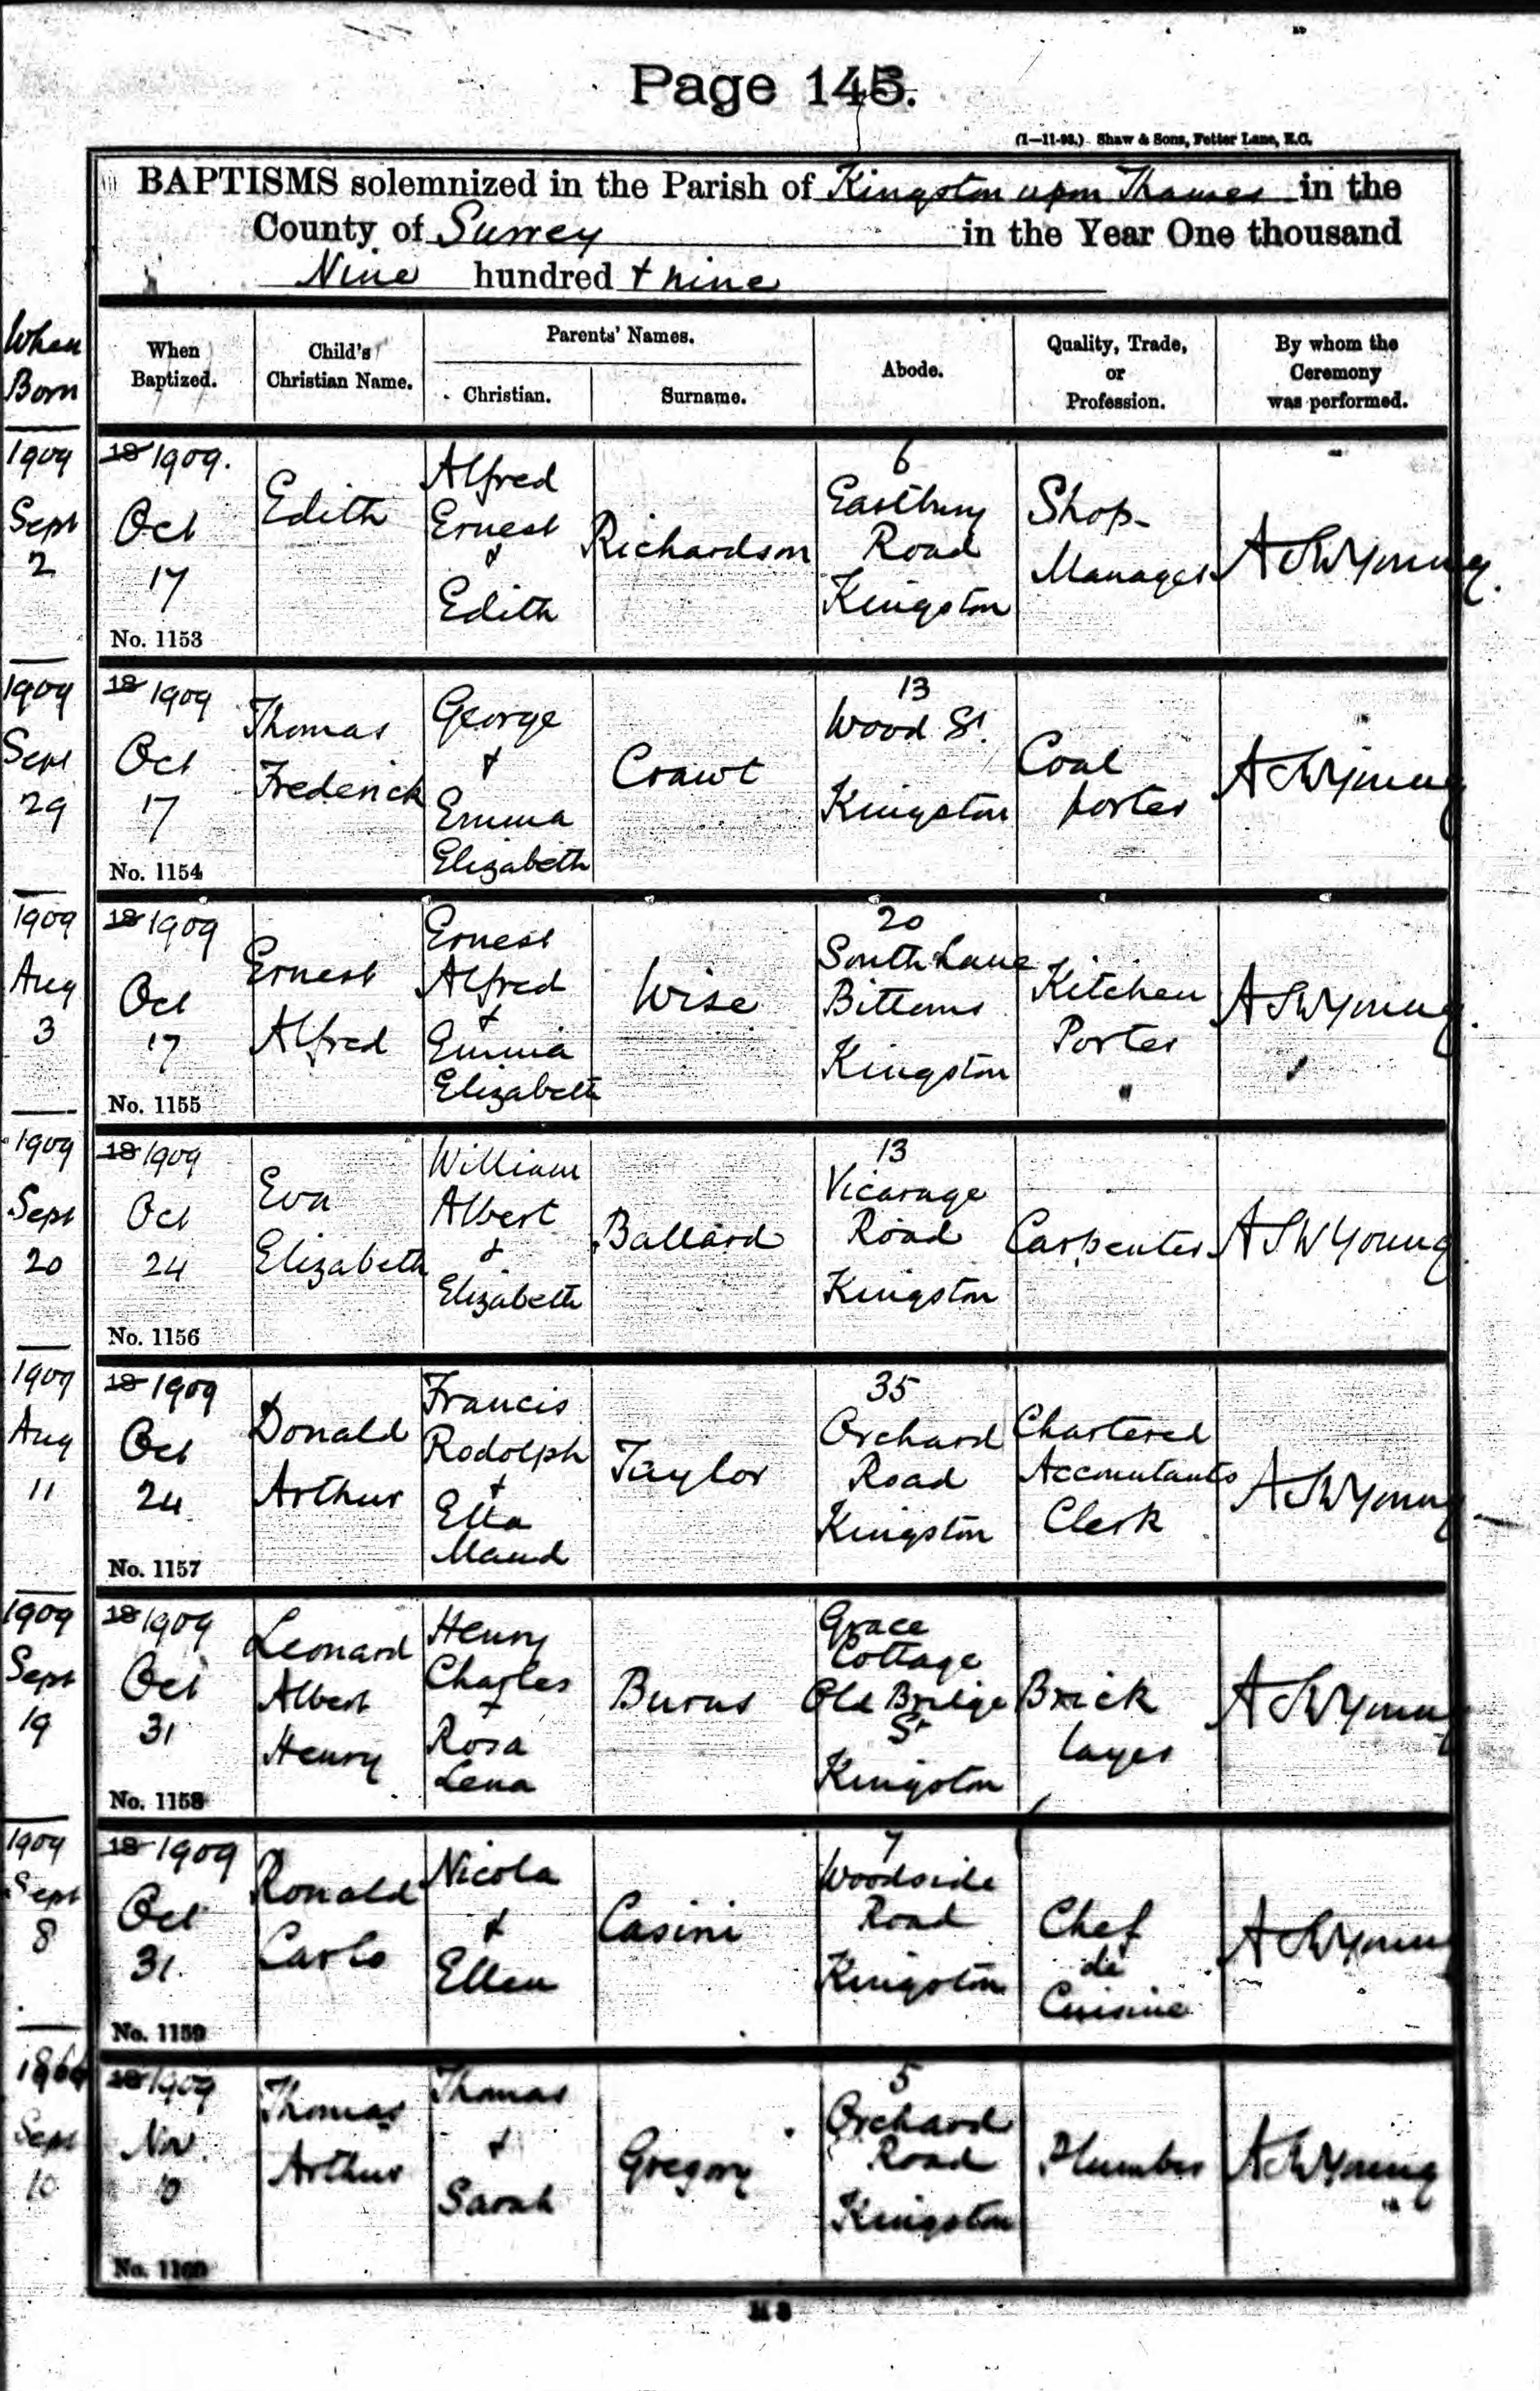 Page 145.
(1—11-93.) Shaw & Sons, Fetter Lane, E.C.
BAPTISMS solemnized in the Parish of Kingston upon Thames in the
County of Surrey in the Year One thousand
Nine hundred & nine
When
Born
When
Baptized.
Child's
Christian Name.
Parents' Names.
Christian.
Surname.
Abode.
Quality, Trade,
or
Profession.
By whom the
Ceremony
was performed.
1909
Sept
2
18 1909.
Oct
17
No. 1153
Edith
Alfred
Ernest
&
Edith
Richardson
6
Eastbury
Road
Kingston
Shop-
Manager
ASWYoung.
1909
Sept
29
18 1909
Oct
17
No. 1154
Thomas
Frederick
George
&
Emma
Elizabeth
Crawt
13
Wood St.
Kingston
Coal
porter
ASWYoung
1909
Aug
3
18 1909
Oct
17
No. 1155
Ernest
Alfred
Ernest
Alfred
&
Emma
Elizabeth
Wise
20
South Lane
Bittoms
Kingston
Kitchen
Porter
ASWYoung.
1909
Sept
20
18 1909
Oct
24
No. 1156
Eva
Elizabeth
William
Albert
&
Elizabeth
Ballard
13
Vicarage
Road
Kingston
Carpenter
ASWYoung
1909
Aug
11
18 1909
Oct
24
No. 1157
Donald
Arthur
Francis
Rodolph
&
Etta
Maud
Taylor
35
Orchard
Road
Kingston
Chartered
Accountants
Clerk
ASWYoung
1909
Sept
19
18 1909
Oct
31
No. 1158
Leonard
Albert
Henry
Henry
Charles
&
Rosa
Lena
Burns
Grace
Cottage
Old Bridge
St
Kingston
Brick
layer
ASWYoung
1909
Sept
8
18 1909
Oct
31.
No. 1159
Ronald
Carlo
Nicola
&
Ellen
Casini
7
Woodside
Road
Kingston
Chef
de
Cuisine
ASWYoung
Sept
10
18 1909
Nov
10
No. 1160
Thomas
Arthur
Thomas
&
Sarah
Gregory
5
Orchard
Road
Kingston
Plumber
ASWYoung